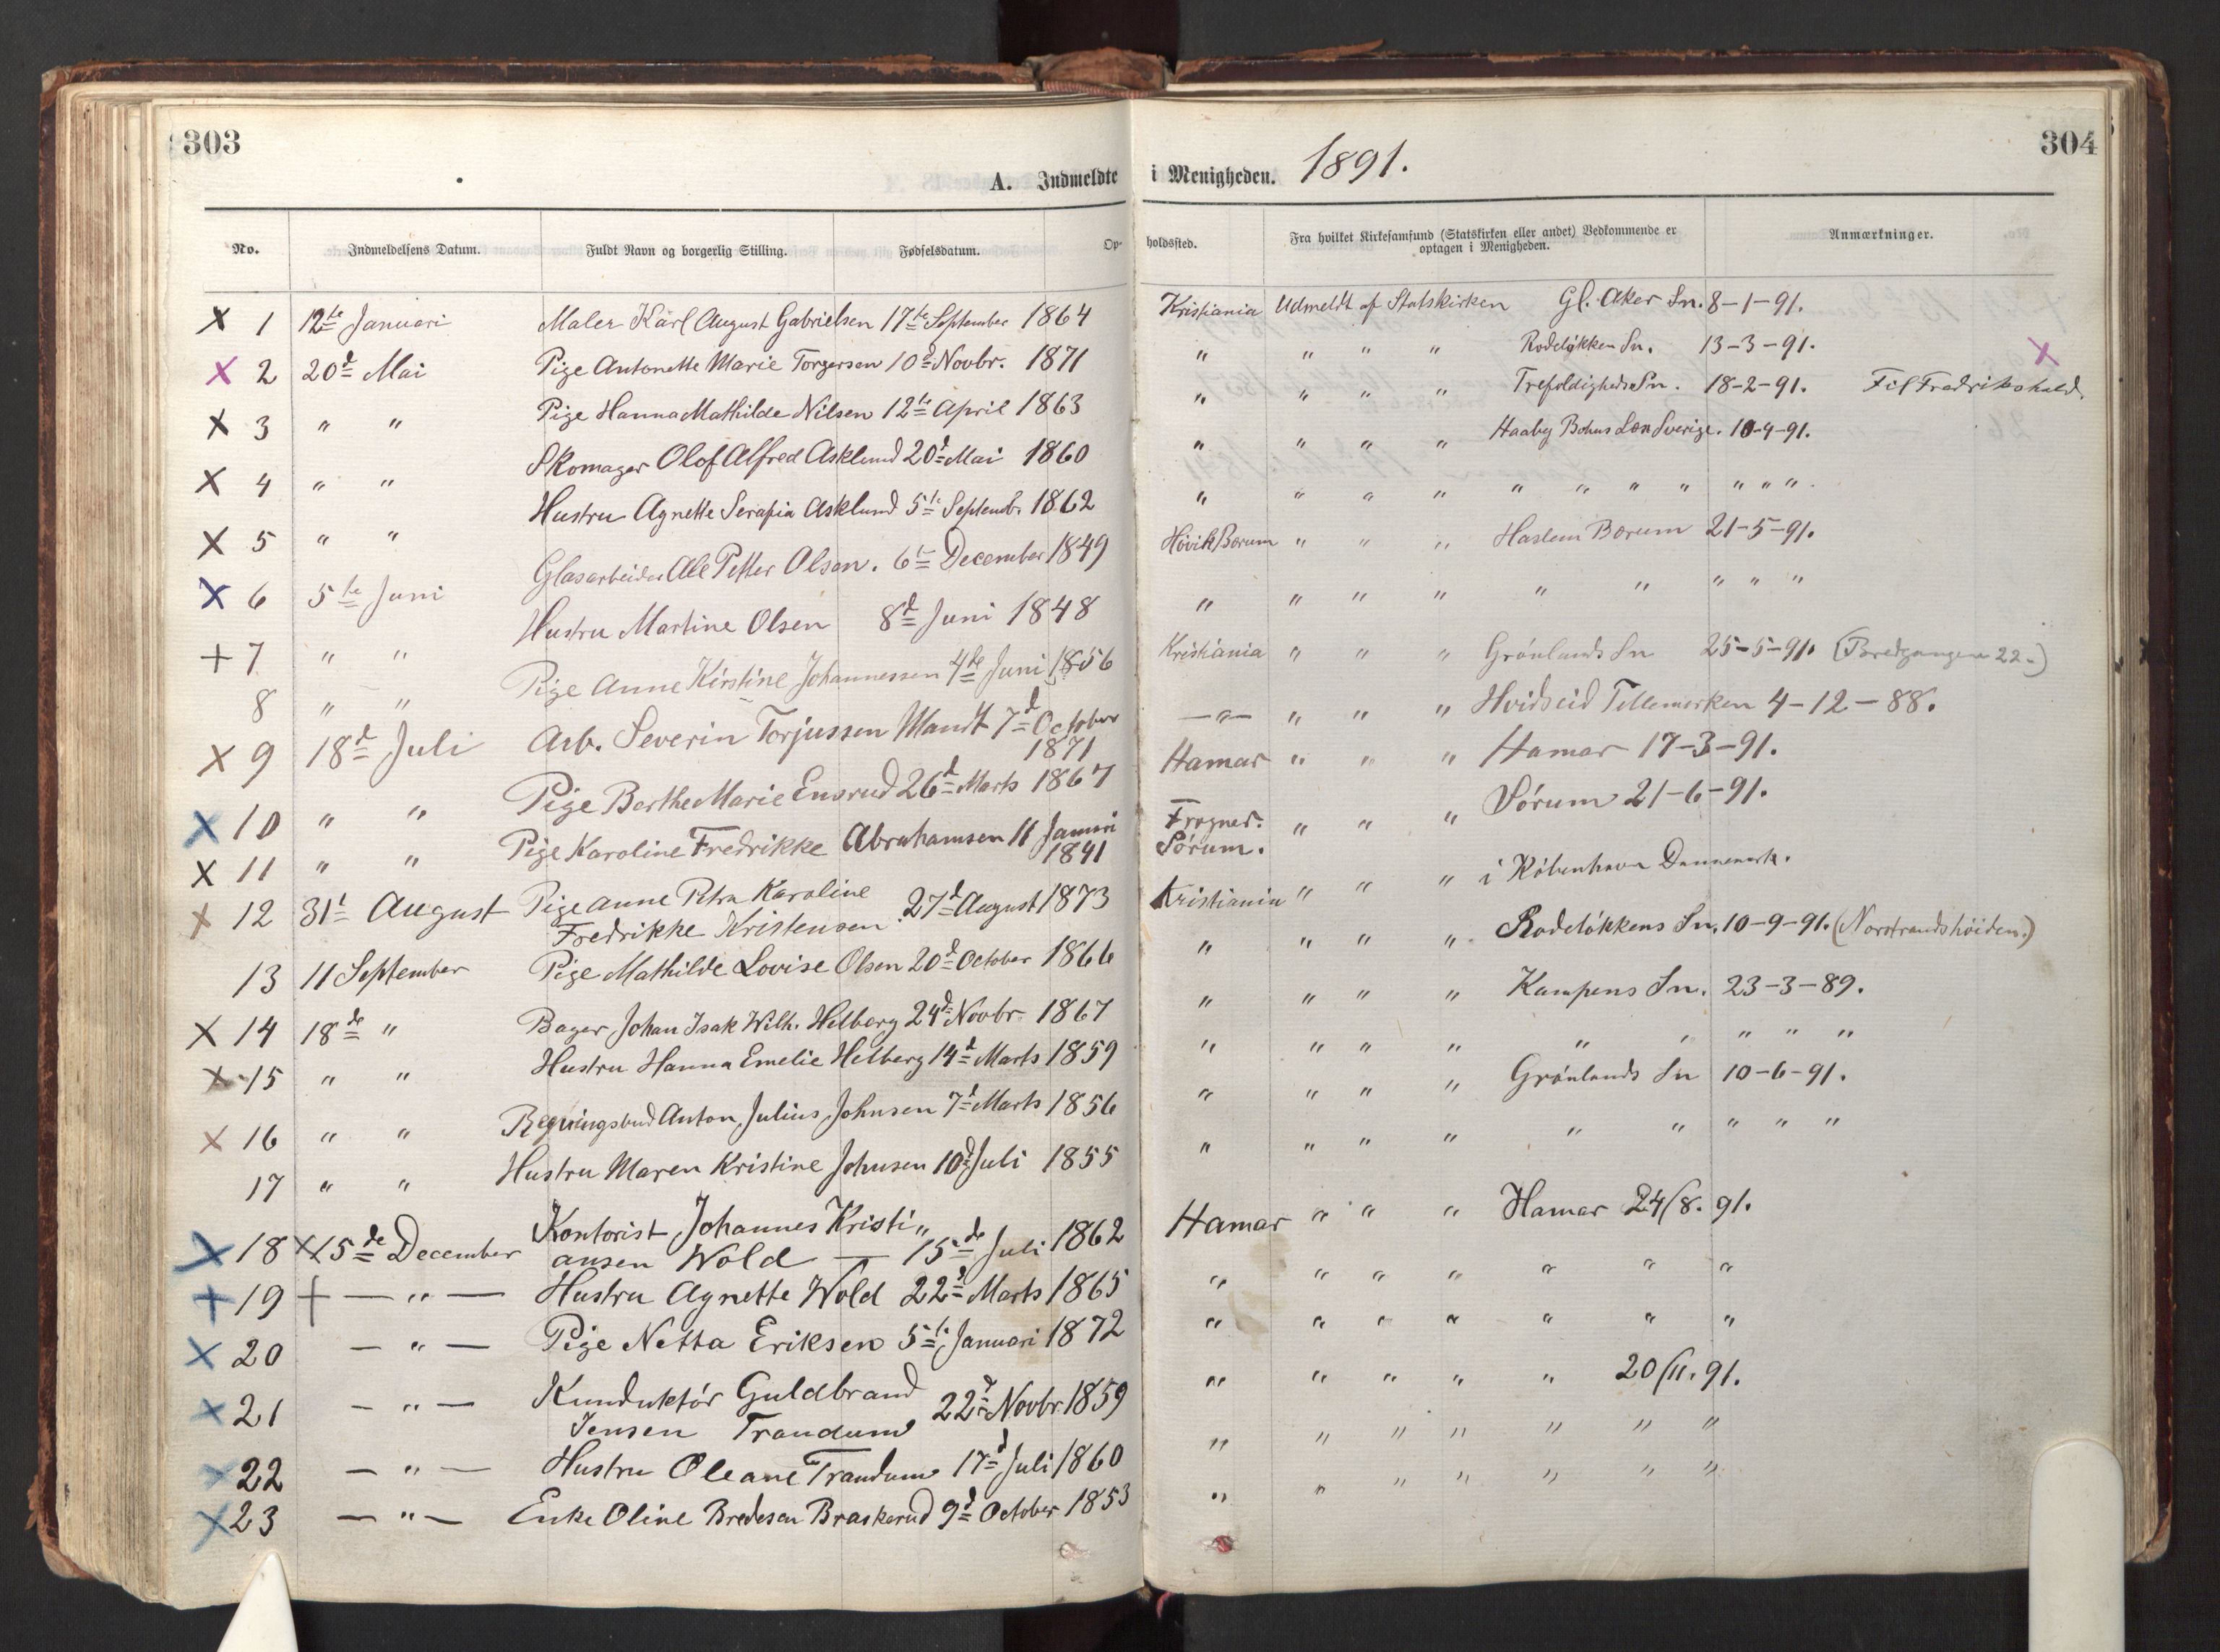 303
304
A. Indmeldte i Menigheden. 1891.
No. Indmeldelsens Datum. Fuldt Navn og borgerlig Stilling. Fødselsdatum. Op- holdssted. Fra hvilket Kirkesamfund (Statskirken eller andet) Vedkommende er Anmærkninger.
optagen i Menigheden.
X 1 12te Januari Maler Karl August Gabrielsen 17te September 1864 Kristiania Udmeldt af Statskirken Gl. Aker Sn. 8-1-91.
X 2 20d Mai Pige Antonette Marie Torgersen 10d Novbr. 1871 " " " " Rodeløkken Sn. 13-3-91. X
X 3 " " Pige Hanna Mathilde Nilsen 12te April 1863 " " " " Trefoldigheds Sn. 18-2-91. Til Fredrikshald.
X 4 " " Skomager Olof Alfred Asklund 20d Mai 1860 " " " " Haaby Bohus Len Sverige. 10-4-91.
X 5 " " Hustru Agnette Serafia Asklund 5te Septemb. 1862 " " " " " " " " " " "
X 6 5te Juni Glasarbeider Ole Petter Olsen. 6te December 1849 Høvik Berum " " " Haslem Berum 21-5-91.
+ 7 " " Hustru Martine Olsen 8d Juni 1848 " " " " " " " " "
8 " " Pige Anne Kirstine Johannessen 4de Juni 1856 Kristiania " " " Grønlands Sn 25-5-91. (Bredgangen 22-)
X 9 18d Juli Arb. Severin Torjussen Mandt 7d October
1871 —"— " " " Hvidseid Tellemerken 4-12-88.
X 10 " " Pige Berthe Marie Ensrud 26d Marts 1867 Hamar " " " Hamar 17-3-91.
X 11 " " Pige Karoline Fredrikke Abrahamsen 11 Januari
1841 Frogner. " " " Sørum 21-6-91.
Sørum.
X 12 31t August Pige Anne Petra Karoline
Fredrikke Kristensen 27d August 1873 Kristiania " " " i København Dannemark.
13 11 September Pige Mathilde Lovise Olsen 20d October 1866 " " " " Rodeløkkens Sn. 10-9-91. (Norstrandshøiden.)
X 14 18de " Bager Johan Isak Wilh. Helberg 24d Novbr 1867 " " " " Kampens Sn. 23-3-89.
X 15 " " Hustru Hanna Emelie Helberg 14d Marts 1859 " " " " " " " " "
X 16 " " Regningsbud Anton Julius Johnsen 7d Marts 1856 " " " " Grønlands Sn 10-6-91.
17 " " Hustru Maren Kristine Johnsen 10d Juli 1855 " " " " " " " " "
X 18 X 15de December Kontorist Johannes Kristi"
ansen Wold — 15de Juli 1862 Hamar " " " Hamar 24/8. 91.
+ 19 + — " — Hustru Agnette Wold 22d Marts 1865 " " " " " " "
X 20 — " — Pige Netta Eriksen 5te Januari 1872 " " " " " " "
X 21 — " — Kunduktør Guldbrand
Jensen Trandum 22d Novbr. 1859 " " " " " 20/11. 91.
X 22 — " — Hustru Oleane Trandum 17d Juli 1860 " " " " " " "
X 23 — " — Enke Oline Bredesen Braskerud 9d October 1853 " " " " " " "